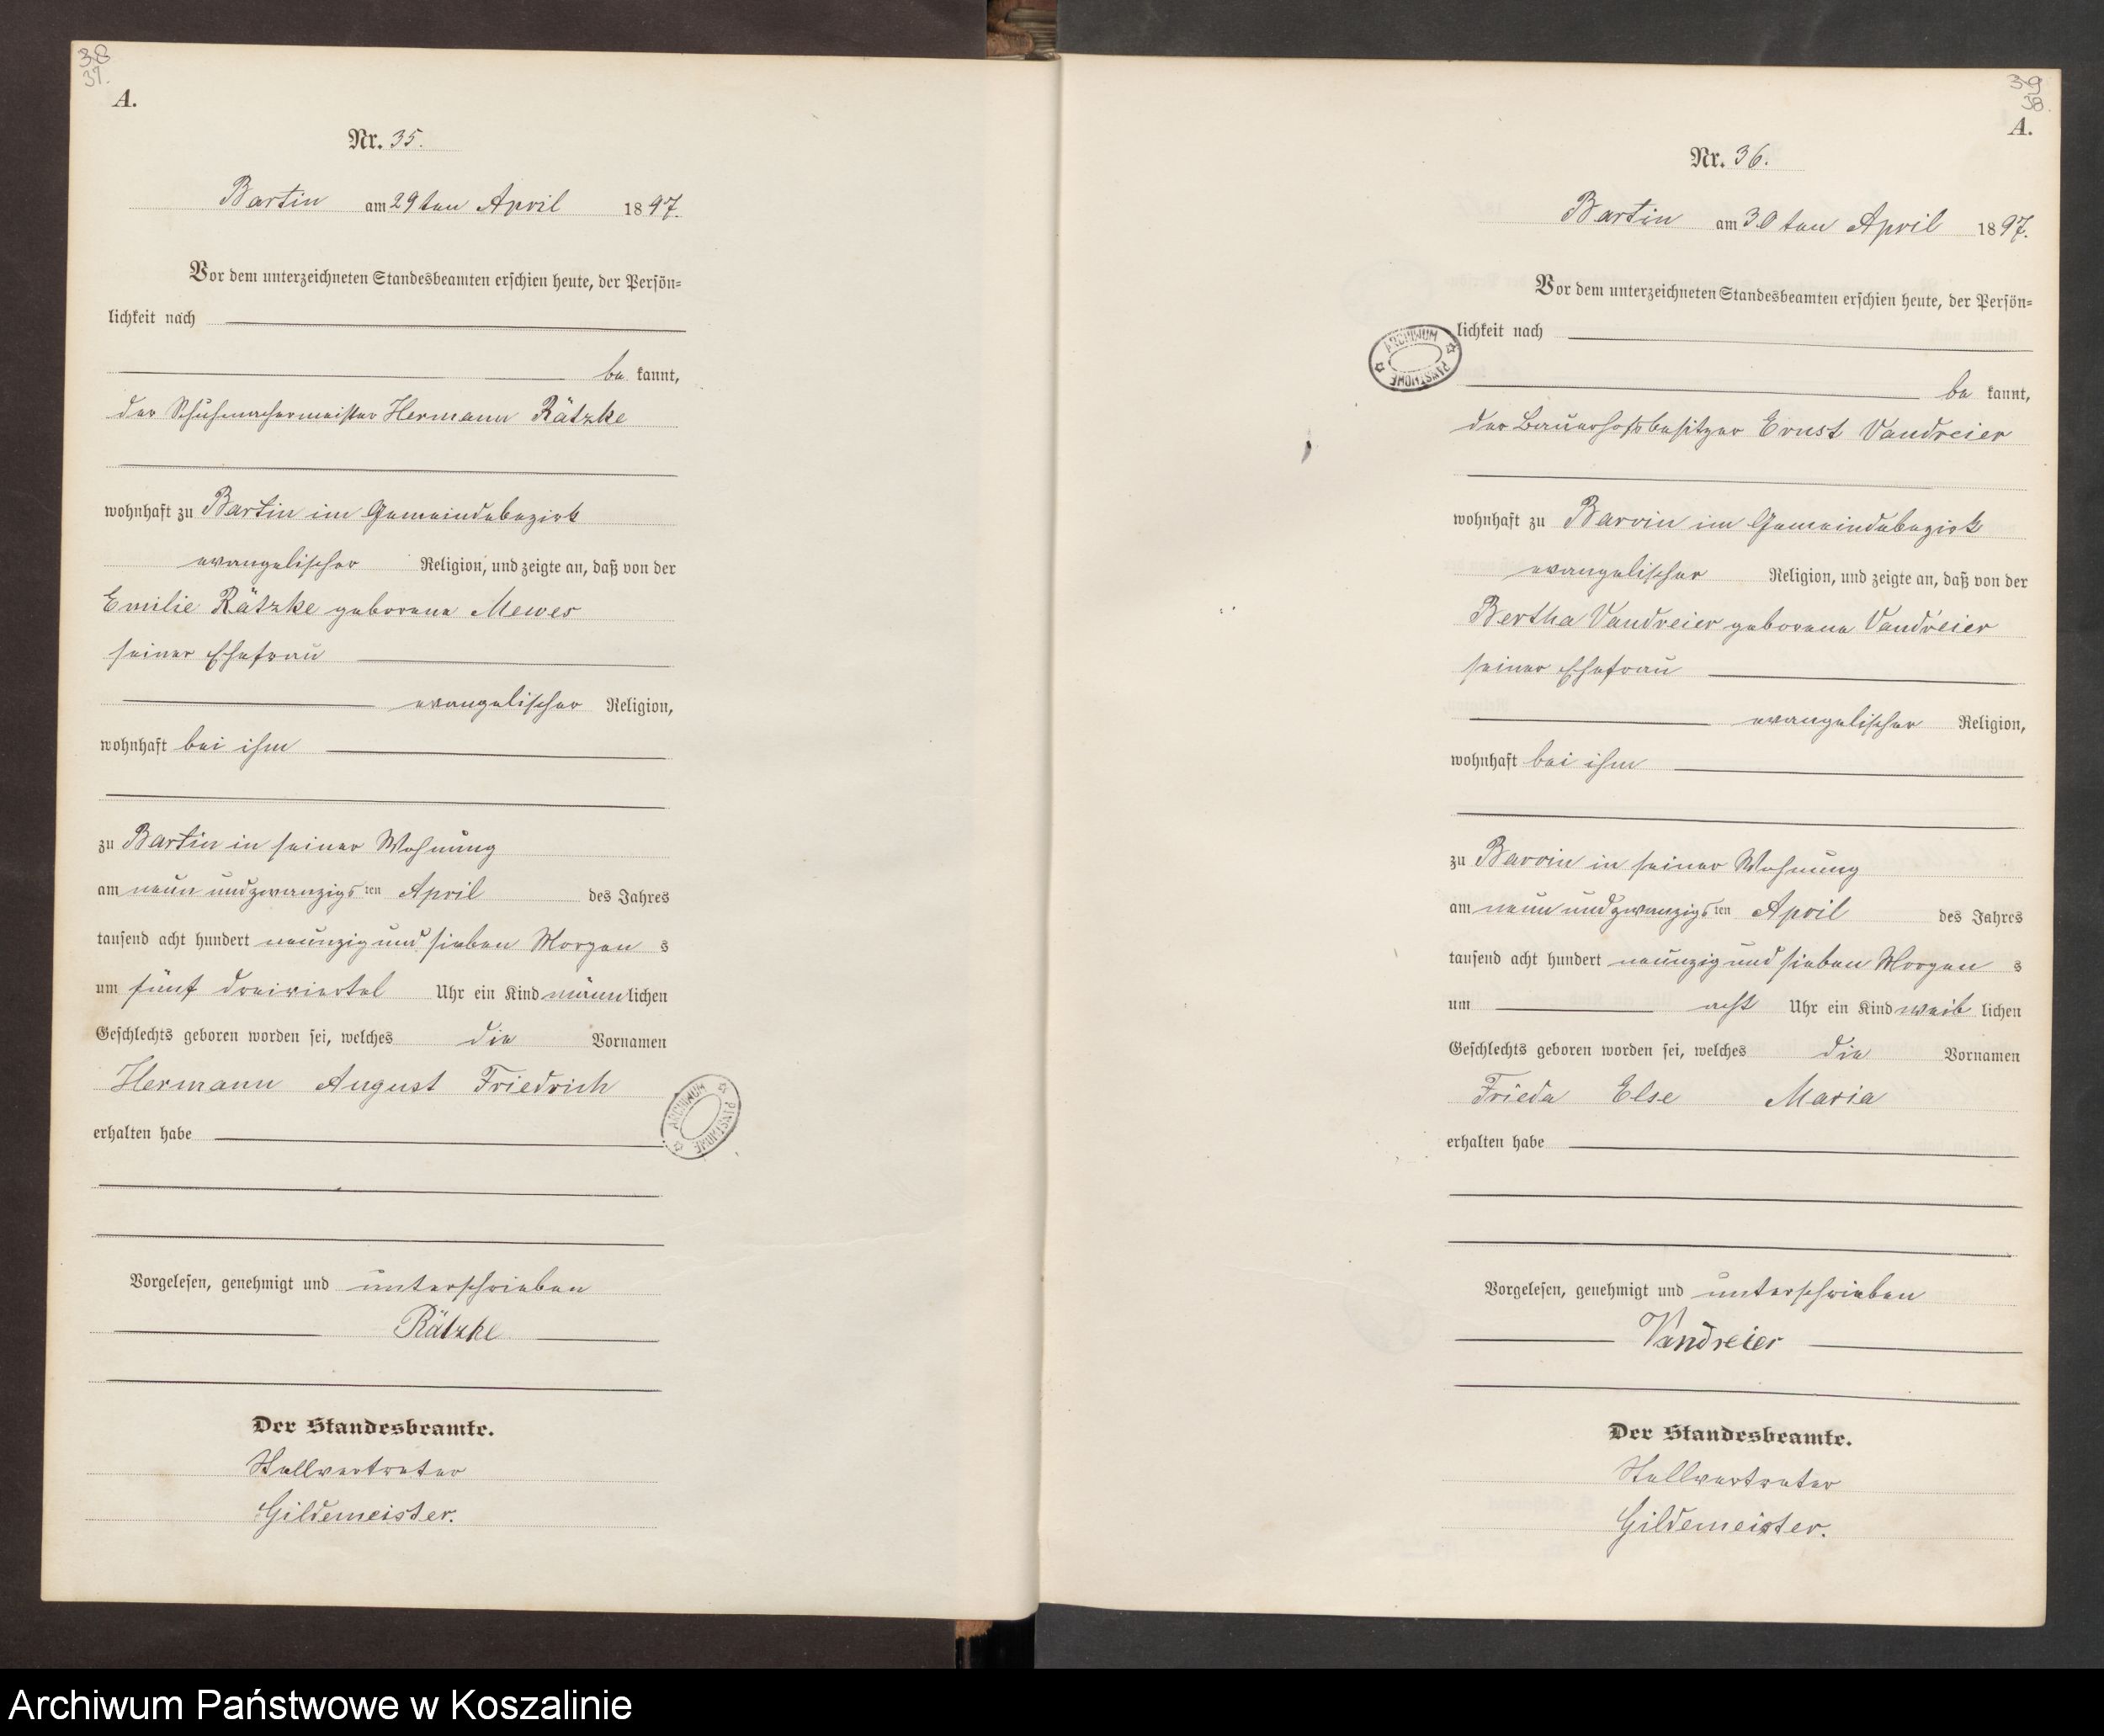 38
37.
A.
Nr. 35.
Bartin am 29ten April 1897.
Vor dem unterzeichneten Standesbeamten erschien heute, der Persön=
lichkeit nach
be kannt,
der Schuhmachermeister Hermann Rätzke
wohnhaft zu Bartin im Gemeindebezirk
evangelischer Religion, und zeigte an, daß von der
Emilie Rätzke geborene Mewes
seiner Ehefrau
evangelischer Religion,
wohnhaft bei ihm
zu Bartin in seiner Wohnung
am neun und zwanzigsten April des Jahres
tausend acht hundert neunzig und sieben Morgens
um fünf dreiviertel Uhr ein Kind männlichen
Geschlechts geboren worden sei, welches die Vornamen
Hermann August Friedrich
erhalten habe
ARCHIWUM PAŃSTWOWE
Vorgelesen, genehmigt und unterschrieben
Rätzke
Der Standesbeamte.
Stellvertreter
Gildemeister.
39
38.
A.
Nr. 36.
Bartin am 30ten April 1897.
Vor dem unterzeichneten Standesbeamten erschien heute, der Persön=
lichkeit nach
ARCHIWUM PAŃSTWOWE
be kannt,
der Bauerhofsbesitzer Ernst Vandreier
wohnhaft zu Barvin im Gemeindebezirk
evangelischer Religion, und zeigte an, daß von der
Bertha Vandreier geborene Vandreier
seiner Ehefrau
evangelischer Religion,
wohnhaft bei ihm
zu Barvin in seiner Wohnung
am neun und zwanzigsten April des Jahres
tausend acht hundert neunzig und sieben Morgens
um acht Uhr ein Kind weiblichen
Geschlechts geboren worden sei, welches die Vornamen
Frieda Else Maria
erhalten habe
Vorgelesen, genehmigt und unterschrieben
Vandreier
Der Standesbeamte.
Stellvertreter
Gildemeister.
Archiwum Państwowe w Koszalinie